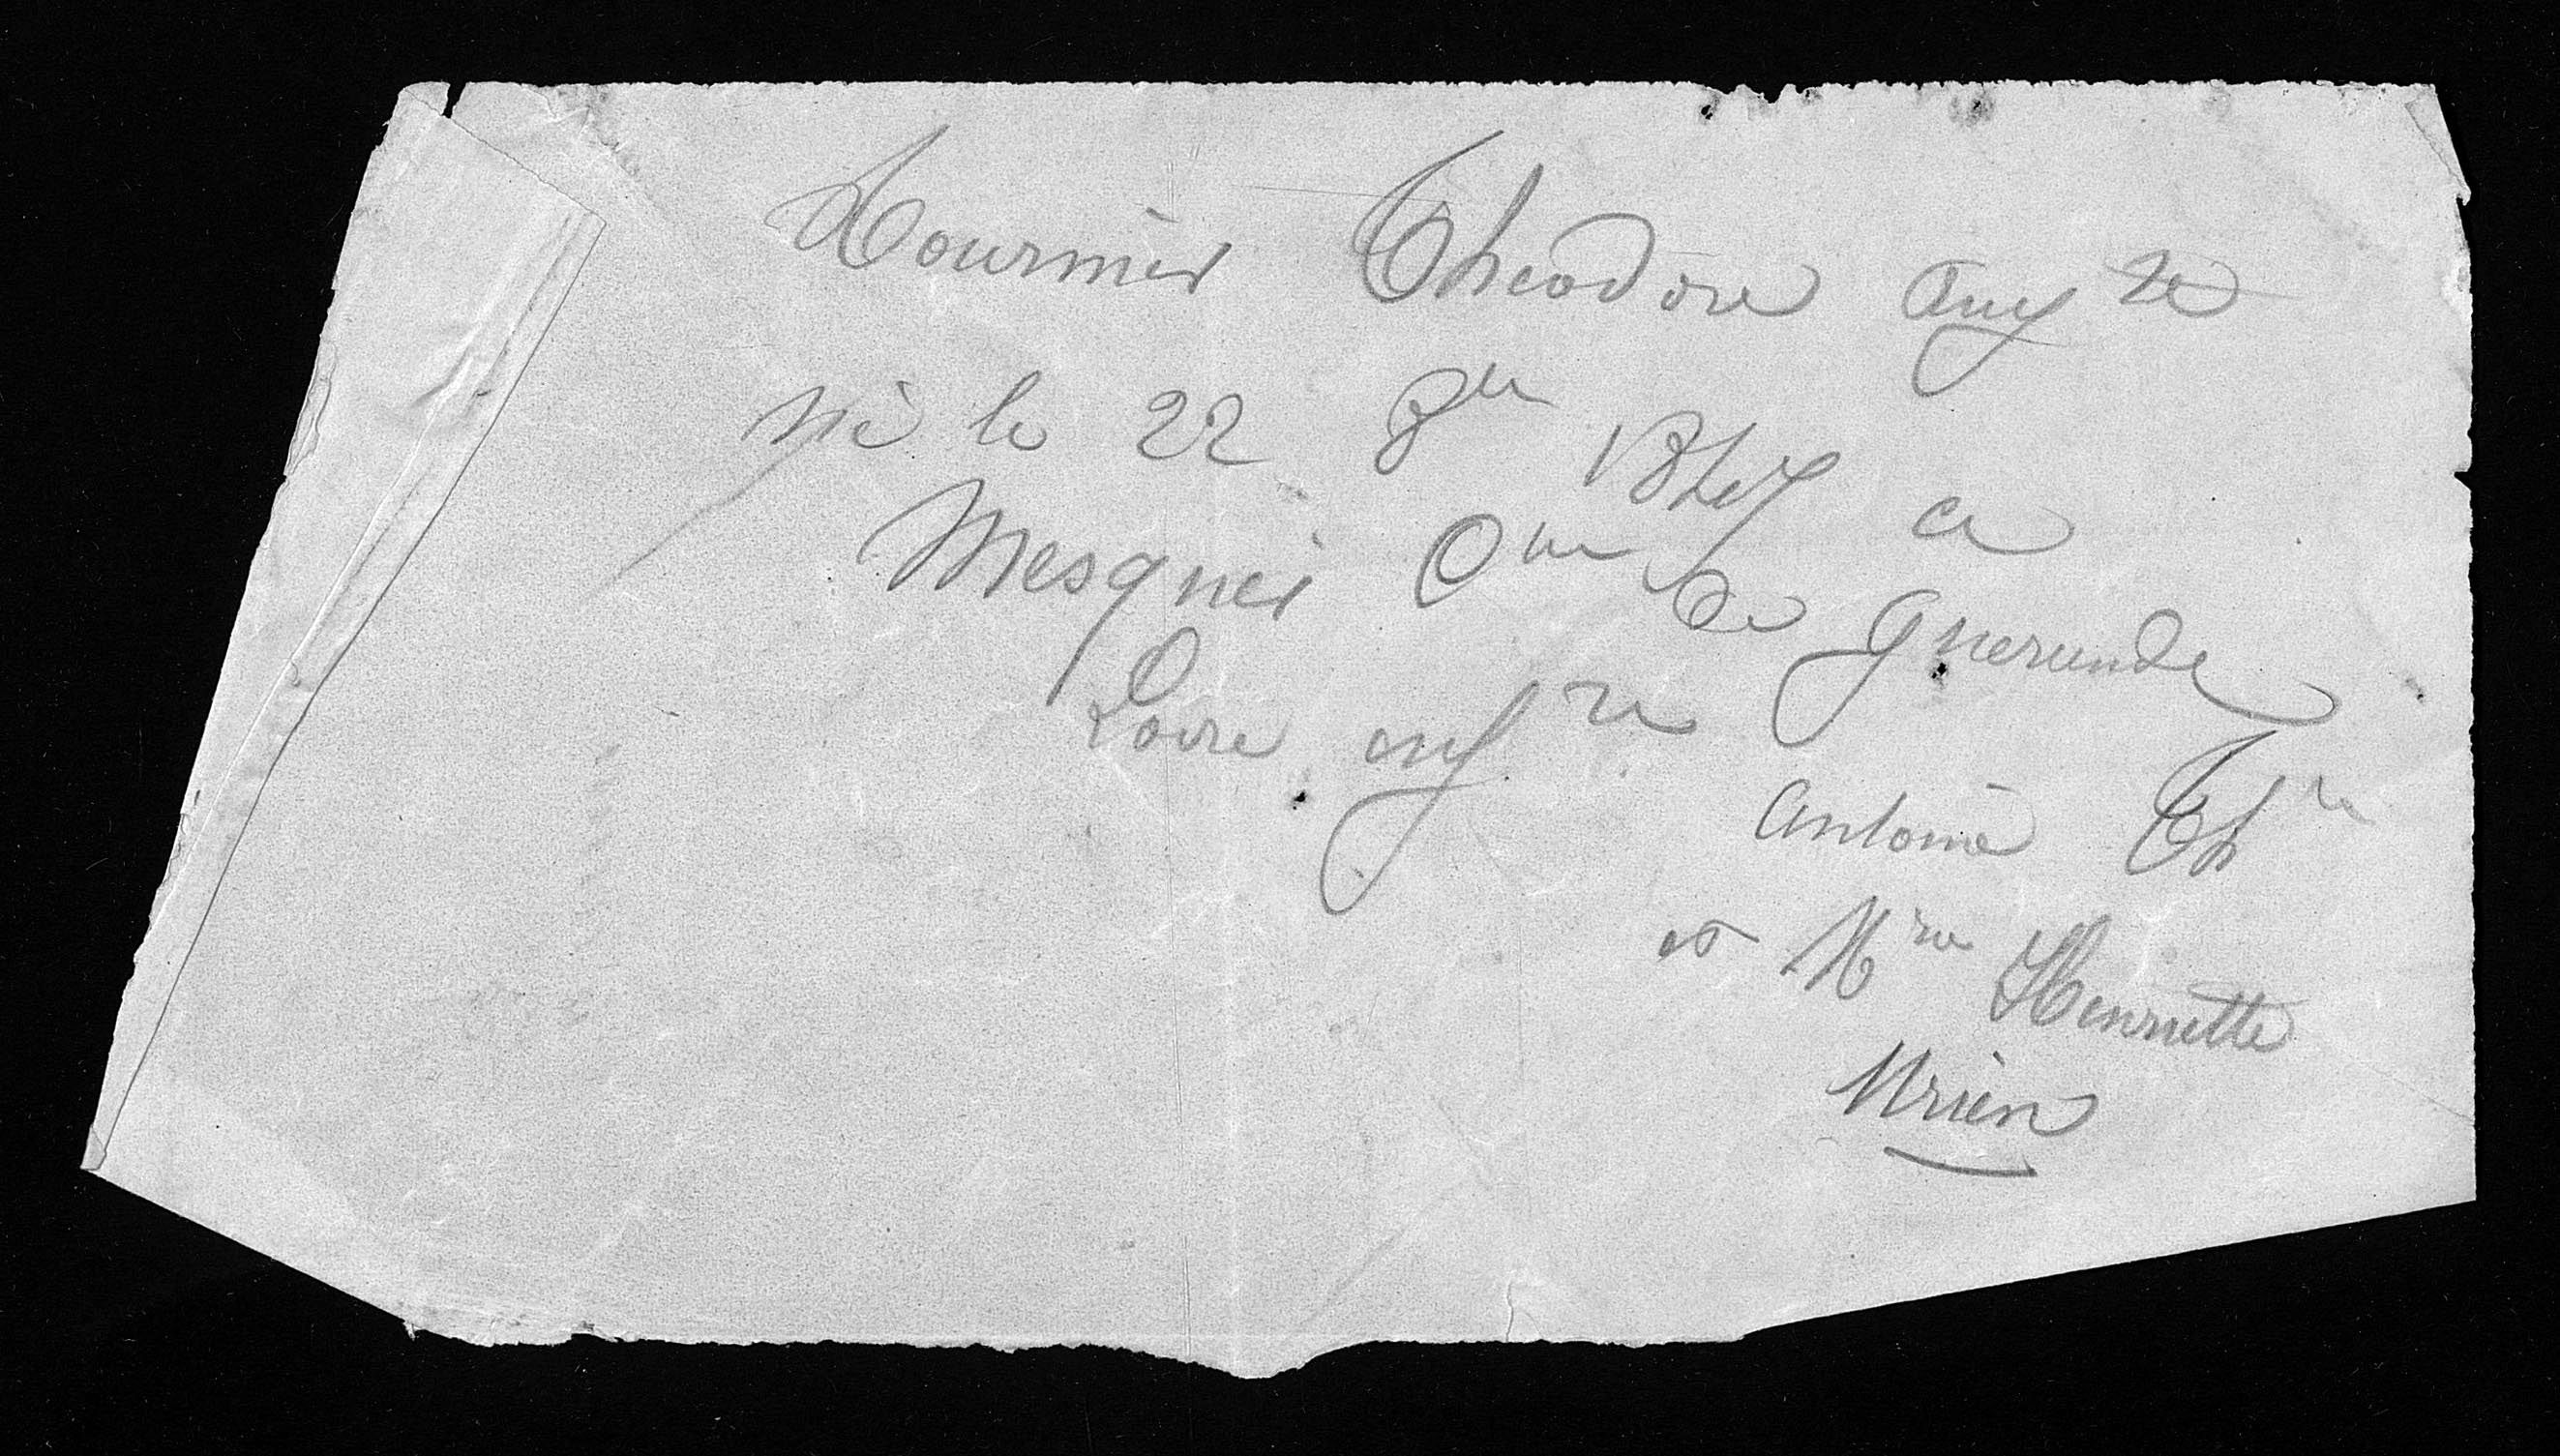 Fournier Theodore Aug te
né le 22 8bre à
Mesquer Con de Guerande
Loire infre
Antoine Thre
et Mme Henriette
Urien